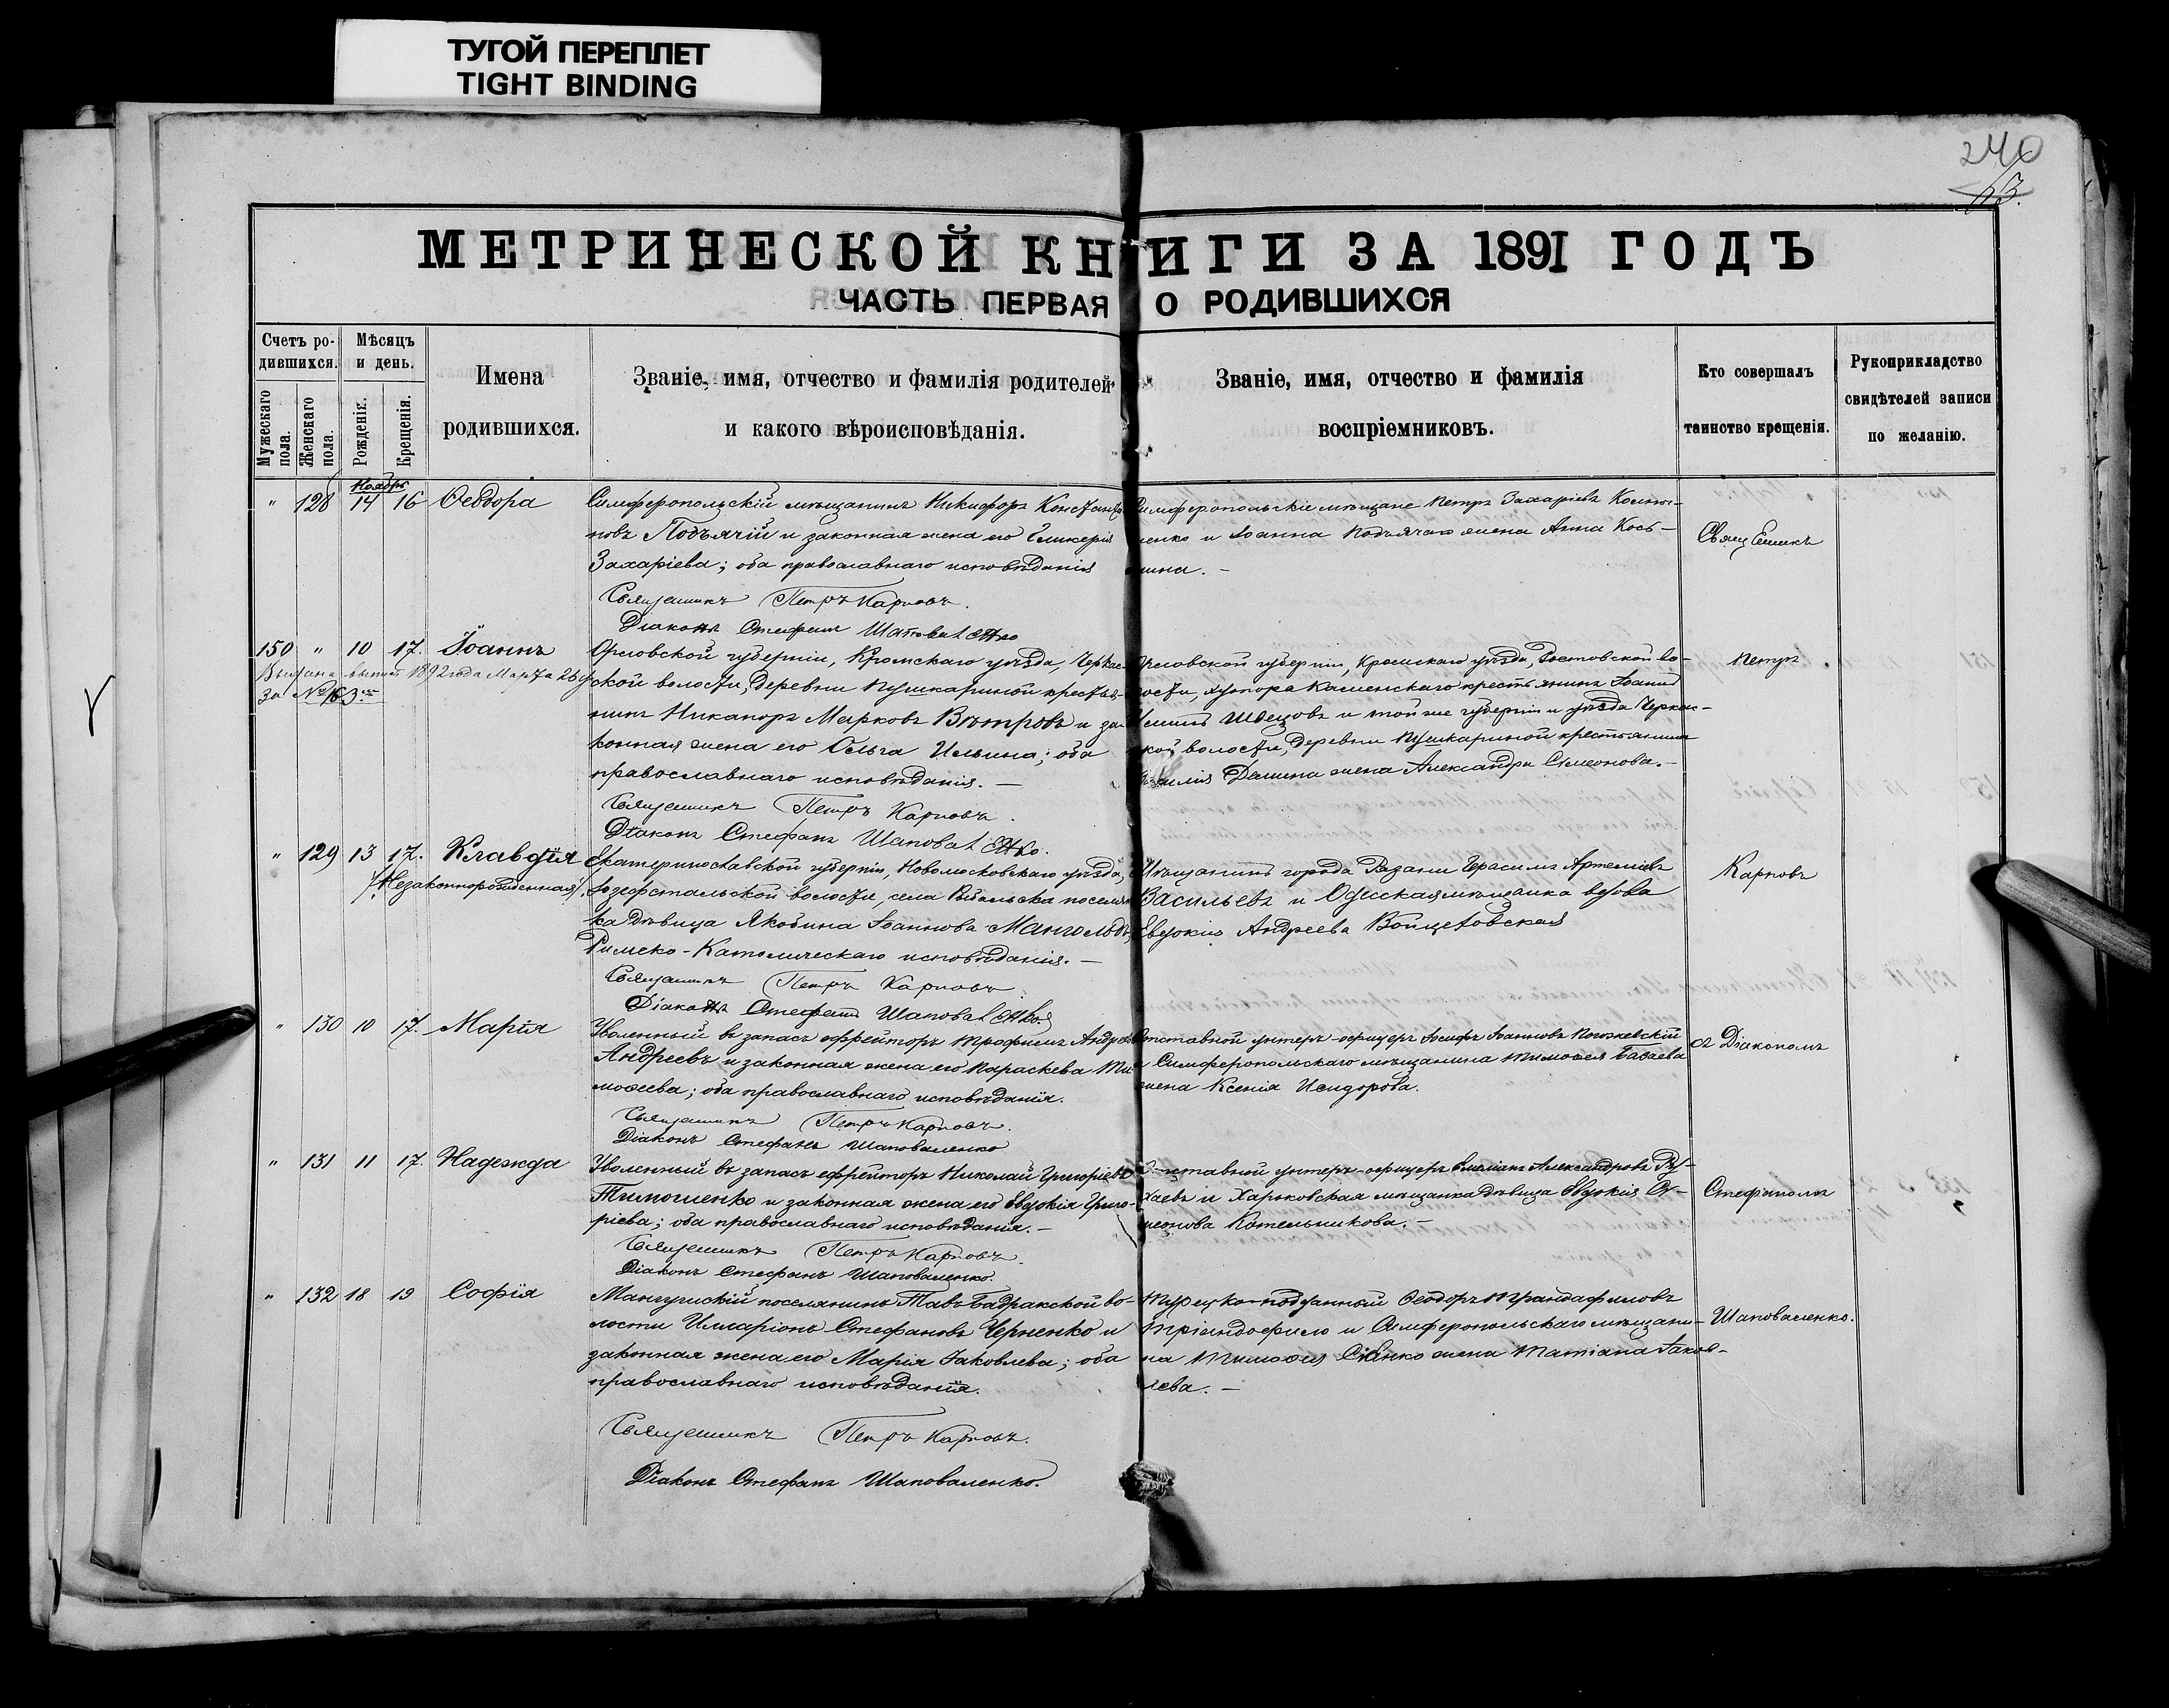 ТУГОЙ ПЕРЕПЛЕТ
TIGHT BINDING
240
МЕТРИЧЕСКОЙ КНИГИ ЗА 1891 ГОДЪ
ЧАСТЬ ПЕРВАЯ О РОДИВШИХСЯ
Счетъ ро-
дившихся.
Мужескаго пола.
Женскаго пола.
Мѣсяцъ
и день.
Рожденія.
Крещенія.
Имена
родившихся.
Званіе, имя, отчество и фамилія родителей
и какого вѣроисповѣданія.
Званіе, имя, отчество и фамилія
воспріемниковъ.
Кто совершалъ
таинство крещенія.
Рукоприкладство
свидѣтелей записи
по желанію.
Ноябрь
" 128 14 16 Ѳеодора
Симферопольскій мѣщанинъ Никифоръ Константи-
новъ Подъячій и законная жена его Гликерія
Захаріева; оба православнаго исповѣданія
Священникъ Петръ Карповъ.
Діаконъ Стефанъ Шаповаленко
Симферопольскіе мѣщане Петръ Захаріевъ
и Іоанна Подъячаго жена Анна
Священникъ
150 " 10 17. Іоаннъ
Выдана выпись 1892 года Марта 26
за № 163
Орловской губерніи, Кромскаго уѣзда, Черкас-
ской волости, деревни Пушкариной крестья-
нинъ Никаноръ Марковъ Вѣтровъ и за-
конная жена его Ольга Ильина; оба
православнаго исповѣданія. —
Священникъ Петръ Карповъ.
Діаконъ Стефанъ Шаповаленко.
Орловской губерніи, Кромскаго уѣзда, Ростовской во-
лости, хутора Каменскаго крестьянинъ Іоаннъ
Швецовъ и той же губерніи и уѣзда Черкас-
ской волости, деревни Пушкариной крестьянина
Василія Демина жена Александра Симеонова. —
Петръ
" 129 13 17. Клавдія
(Незаконнорожденная).
Екатеринославской губерніи, Новомосковскаго уѣзда,
Іозефстальской волости, села Рыбальска поселян-
ка дѣвица Якобина Іоаннова Мангольдъ,
Римско-Католическаго исповѣданія. —
Священникъ Петръ Карповъ
Діаконъ Стефанъ Шаповаленко.
Мѣщанинъ города Рязани Герасимъ Артеміевъ
Васильевъ и Одесская мѣщанка вдова
Евдокія Андреева Войцеховская
Карповъ
" 130 10 17. Марія
Уволенный въ запасъ ефрейторъ Трофимъ Андреевъ
Андреевъ и законная жена его Параскева Ти-
моѳеева; оба православнаго исповѣданія.
Священникъ Петръ Карповъ.
Діаконъ Стефанъ Шаповаленко
Отставной унтеръ-офицеръ Іосифъ Іоанновъ
и Симферопольскаго мѣщанина Тимоѳея Базаева
жена Ксенія Исидорова.
съ Діакономъ
" 131 11 17. Надежда
Уволенный въ запасъ ефрейторъ Николай Григорьевъ
Тимошенко и законная жена его Евдокія Григо-
ріева; оба православнаго исповѣданія. —
Священникъ Петръ Карповъ.
Діаконъ Стефанъ Шаповаленко.
Отставной унтеръ-офицеръ Емеліанъ Александровъ
и Харьковская мѣщанка дѣвица Евдокія Си-
меонова Котельникова. —
Стефаномъ
" 132 18 19 Софія
Мангушскій поселянинъ Тавъ-Бадракской во-
лости Илларіонъ Стефановъ Черненко и
законная жена его Марія Іаковлева; оба
православнаго исповѣданія.
Священникъ Петръ Карповъ.
Діаконъ Стефанъ Шаповаленко.
Турецко-подданный Ѳеодоръ Трандафиловъ
Тріандофило и Симферопольскаго мѣщани-
на Тимоѳея жена Татіана Іаков-
лева. —
Шаповаленко.